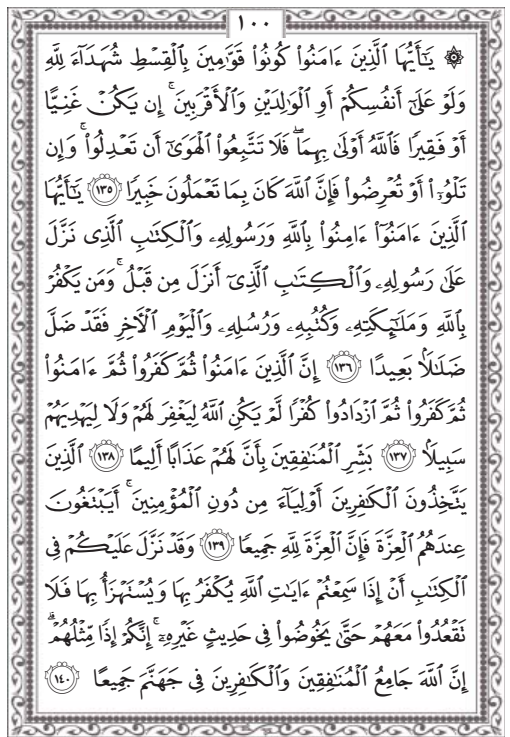 ١٠٠
۞ يَٰٓأَيُّهَا ٱلَّذِينَ ءَامَنُواْ كُونُواْ قَوَّٰمِينَ بِٱلْقِسْطِ شُهَدَآءَ لِلَّهِ
وَلَوْ عَلَىٰٓ أَنفُسِكُمْ أَوِ ٱلْوَٰلِدَيْنِ وَٱلْأَقْرَبِينَ ۚ إِن يَكُنْ غَنِيًّا
أَوْ فَقِيرًا فَٱللَّهُ أَوْلَىٰ بِهِمَا ۖ فَلَا تَتَّبِعُواْ ٱلْهَوَىٰٓ أَن تَعْدِلُواْ ۚ وَإِن
تَلْوُۥٓاْ أَوْ تُعْرِضُواْ فَإِنَّ ٱللَّهَ كَانَ بِمَا تَعْمَلُونَ خَبِيرًا ١٣٥ يَٰٓأَيُّهَا
ٱلَّذِينَ ءَامَنُوٓاْ ءَامِنُواْ بِٱللَّهِ وَرَسُولِهِۦ وَٱلْكِتَٰبِ ٱلَّذِى نَزَّلَ
عَلَىٰ رَسُولِهِۦ وَٱلْكِتَٰبِ ٱلَّذِىٓ أَنزَلَ مِن قَبْلُ ۚ وَمَن يَكْفُرْ
بِٱللَّهِ وَمَلَٰٓئِكَتِهِۦ وَكُتُبِهِۦ وَرُسُلِهِۦ وَٱلْيَوْمِ ٱلْأَخِرِ فَقَدْ ضَلَّ
ضَلَٰلًۢا بَعِيدًا ١٣٦ إِنَّ ٱلَّذِينَ ءَامَنُواْ ثُمَّ كَفَرُواْ ثُمَّ ءَامَنُواْ
ثُمَّ كَفَرُواْ ثُمَّ ٱزْدَادُواْ كُفْرًا لَّمْ يَكُنِ ٱللَّهُ لِيَغْفِرَ لَهُمْ وَلَا لِيَهْدِيَهُمْ
سَبِيلًۢا ١٣٧ بَشِّرِ ٱلْمُنَٰفِقِينَ بِأَنَّ لَهُمْ عَذَابًا أَلِيمًا ١٣٨ ٱلَّذِينَ
يَتَّخِذُونَ ٱلْكَٰفِرِينَ أَوْلِيَآءَ مِن دُونِ ٱلْمُؤْمِنِينَ ۚ أَيَبْتَغُونَ
عِندَهُمُ ٱلْعِزَّةَ فَإِنَّ ٱلْعِزَّةَ لِلَّهِ جَمِيعًا ١٣٩ وَقَدْ نَزَّلَ عَلَيْكُمْ فِى
ٱلْكِتَٰبِ أَنْ إِذَا سَمِعْتُمْ ءَايَٰتِ ٱللَّهِ يُكْفَرُ بِهَا وَيُسْتَهْزَأُ بِهَا فَلَا
تَقْعُدُواْ مَعَهُمْ حَتَّىٰ يَخُوضُواْ فِى حَدِيثٍ غَيْرِهِۦٓ ۚ إِنَّكُمْ إِذًا مِّثْلُهُمْ ۗ
إِنَّ ٱللَّهَ جَامِعُ ٱلْمُنَٰفِقِينَ وَٱلْكَٰفِرِينَ فِى جَهَنَّمَ جَمِيعًا ١٤٠